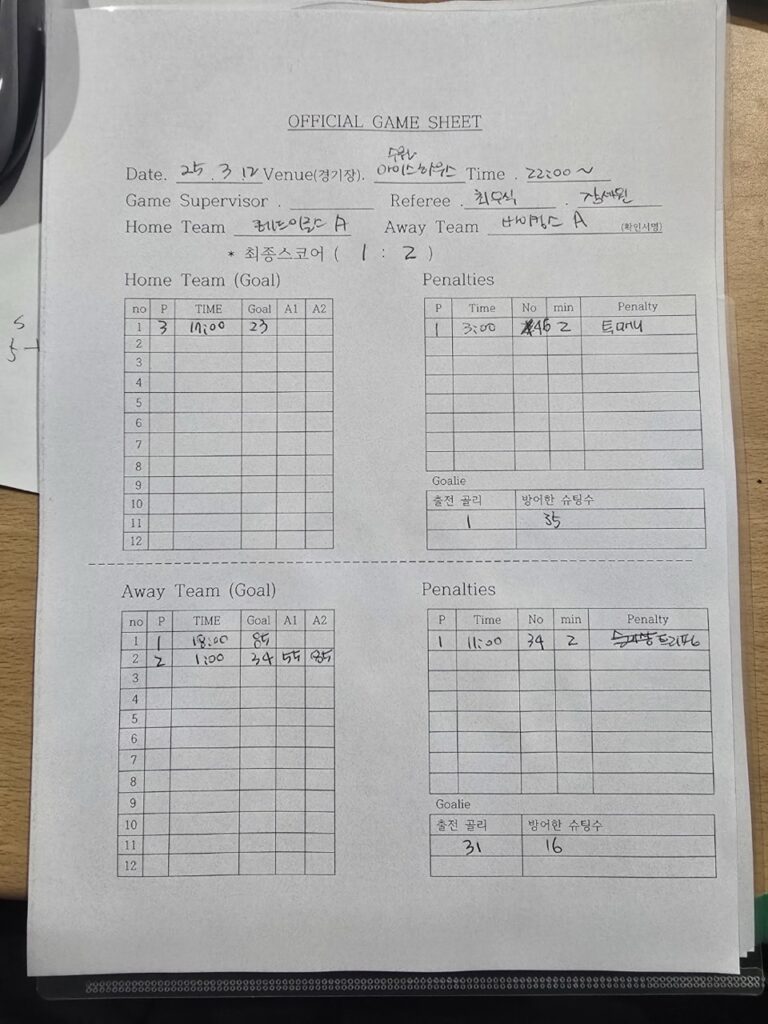 OFFICIAL GAME SHEET
수원
Date. 25 . 3 . 12 Venue(경기장). 아이스하우스 Time . 22:00 ~
Game Supervisor . Referee . .
Home Team A Away Team 바이킹스 A (확인서명)
* 최종스코어 ( 1 : 2 )
Home Team (Goal) Penalties
no P TIME Goal A1 A2 P Time No min Penalty
1 3 17:00 23 1 3:00 46 2 투매니
2
3
4
5
6
7
8
9 Goalie
10 출전 골리 방어한 슈팅수
11 1 35
12
Away Team (Goal) Penalties
no P TIME Goal A1 A2 P Time No min Penalty
1 1 18:00 85 1 11:00 34 2 트리핑
2 2 1:00 34 55 85
3
4
5
6
7
8
9 Goalie
10 출전 골리 방어한 슈팅수
11 31 16
12